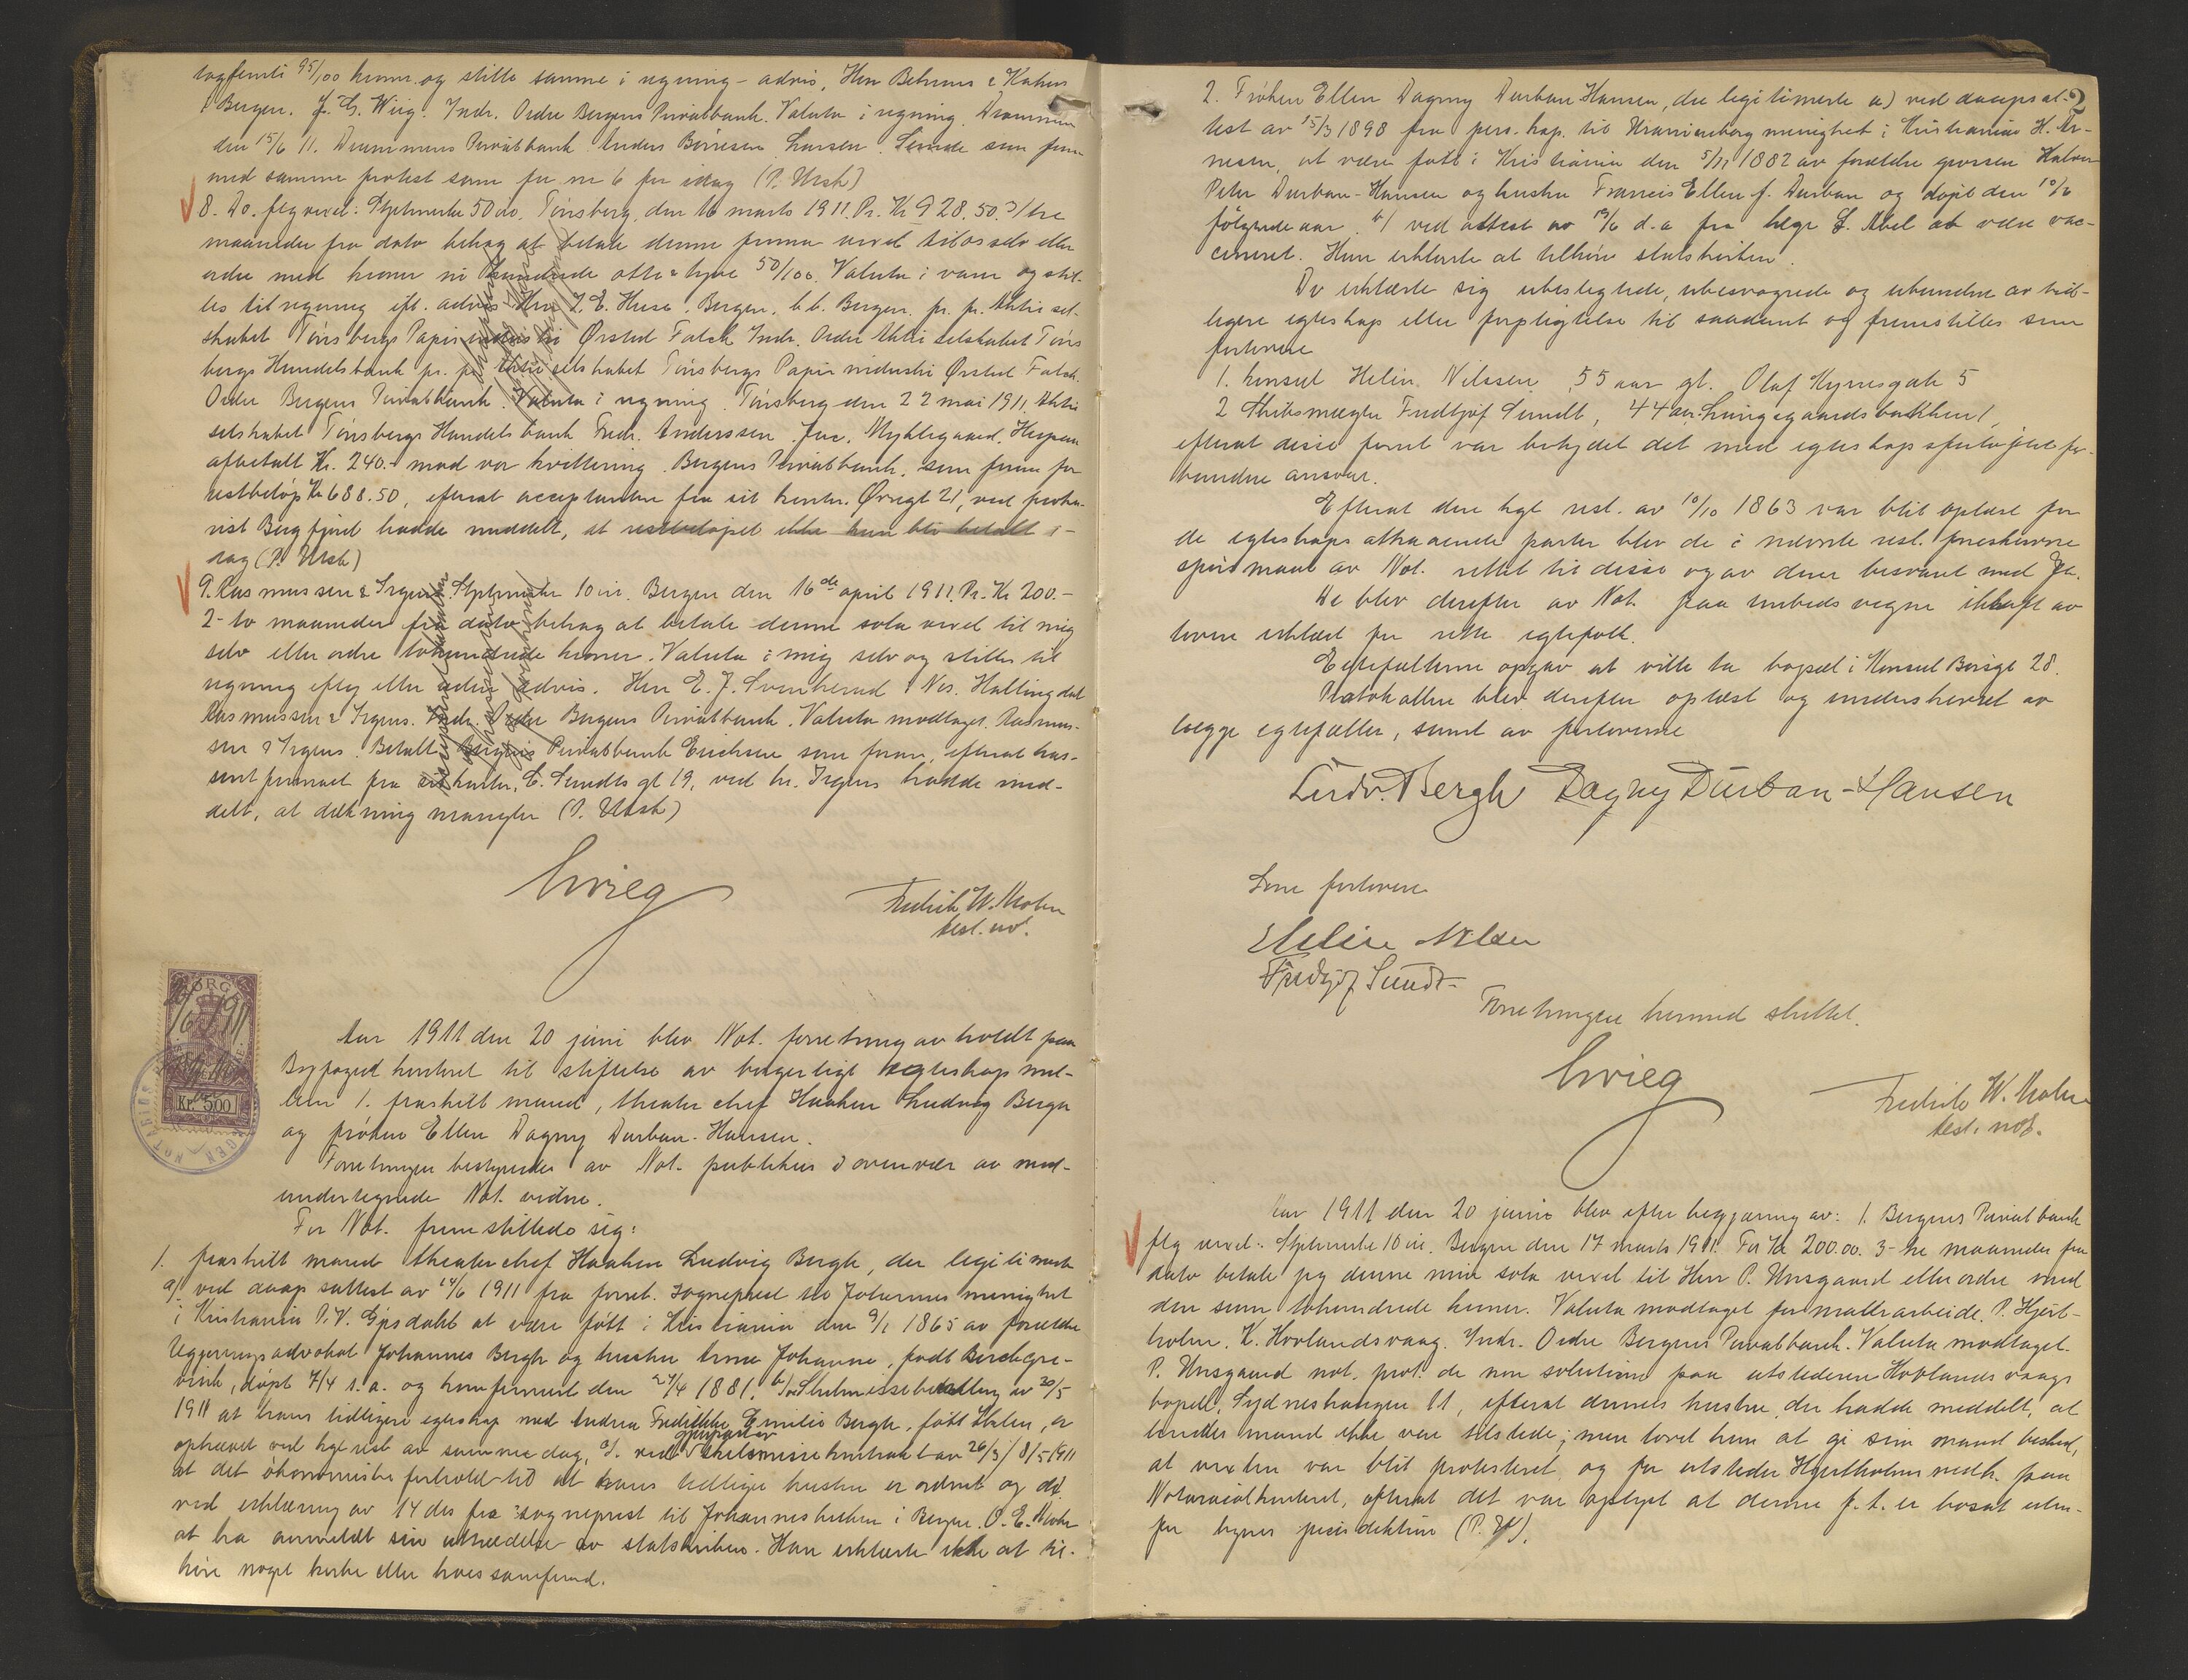 og femti 95/100 kroner og stille samme i regning - advis. Herr Behrens & Kahrs
i Bergen. J. G. Wiig. Indr. Ordre Bergens Privatbank. Valuta i regning. Drammen
den 15/6 11. Drammens Privatbank. Anders Börresen Larsen. Sende som form
med samme protest som for nr 6 for idag (P. Utsk)
8. Do. flg vexel: Stplmerke 50 öre. Tönsberg, den 16 marts 1911. Pr. Kr 928.50. 3/tre
maaneder fra dato behag at betale denne prima vexel til os selv eller
ordre med kroner ni hundrede otte & tyve 50/100. Valuta i varer og stil-
les til regning ift. advis. Herr I. E. Huse. Bergen. b.b. Bergen. pr. pr. Aktiesel-
skabet Tönsbergs Papirindustri Ørsted Falck Indr. Ordre Aktieselskabet Töns
bergs Handelsbank pr. pr. Aktieselskabet Tönsbergs Papirindustri Ørsted Falck.
Ordre Bergens Privatbank. Valuta i regning. Tönsberg den 22 mai 1911. Aktie
selskabet Tönsbergs Handelsbank Fredr. Anderssen. Jac. Myhlegaard. Herpaa
afbetalt Kr. 240.- mod vor kvittering. Bergens Privatbank. som form for
restbelöp Kr 688.50, efterat acceptanten fra sit kontor. Øvregt 21, ved proku-
rist Bergfjord hadde meddelt, at restbelöpet ikke kan bli betalt i-
dag (P. Utsk)
9. Rasmussen & Irgens. Stplmerke 10 öre. Bergen den 16de april 1911. Pr. Kr 200.-
2- to maaneder fra dato behag at betale denne sola vexel til mig
selv eller ordre tohundrede kroner. Valuta i mig selv og stilles til
regning eftg eller uden advis. Herr E. J. Svenkerud Nes. Hallingdal
Rasmussen & Irgens. Indr. Ordre Bergens Privatbank. Valuta modtaget. Rasmus-
sen & Irgens. Betalt Bergens Privatbank Erichsen som form, efterat tras-
sent firmaet fra sit kontor, C. Sundts gt 19, ved hr. Irgens hadde med-
delt, at dækning mangler (P. Utsk)
Grieg
Fredrik W. Mohn
test. not.
NORGE
Kr. 5.00
Aar 1911 den 20 juni blev Not. forretning avholdt paa
Byfoged kontoret til stiftelse av borgerligt egteskap mel-
lem 1. fraskilt mand, theaterchef Haakon Ludvig Bergh
og fröken Ellen Dagny Durban-Hansen.
Forretningen bestyredes av Not. publikus i overvær av med-
undertegnede Not. vidne.
For Not. fremstillede sig:
1. fraskilt mand theaterchef Haakon Ludvig Bergh, der legitimerte
a/ ved daapsattest av 14/6 1911 fra forret. sogneprest til Johannes menighet
i Kristiania P. V. Gjesdahl at være fött i Kristiania den 9/1 1865 av forældre
regjeringsadvokat Johannes Bergh og hustru Anna Johanne, födt Birchgre-
vink, döpt 7/4 s.a. og konfirmert den 24/4 1881. b/ Skilsmissebevilling av 20/5
1911 at hans tidligere egteskap med Andrea Fredrikke Emilie Bergh, född Thalen, er
ophævet ved kgl resl av samme dag, c/ ved gjenpart av skilsmissekontrakt av 26/3 / 8/5 1911
at det ökonomiske forhold til hans tidligere hustru er ordnet og d/
ved erklæring av 14 ds fra sogneprest til Johanneskirken i Bergen. O. E. Mohn
at ha anmeldt sin utrædelse av statskirken. Han erklærte ikke at til-
höre noget kirke eller trossamfund.
2
2. Fröken Ellen Dagny Durban Hansen, der legitimerte a) ved daapsat-
test av 15/3 1898 fra pers. kap. til Uranienborg menighet i Kristiania H. Ar-
nesen, at være født i Kristiania den 5/11 1882 av forældre grosserer Halvor
Peter Durban-Hansen og hustru Francis Ellen f. Durban og döpt den 10/6
fölgende aar. b/ ved attest av 19/6 d.a fra læge L. Abel at være vac-
cineret. Hun erklærte at tilhöre statskirken.
De erklærte sig ubeslegtede, ubesvogrede og ubundne av tid-
ligere egteskap eller forpligtelse til saadant og fremstilles som
forlovere
1. konsul Helin Nilssen, 55 aar gl. Olaf Kyrresgate 5
2 Skibsmægler Fridtjof Sundt, 44 aar. Lungegaardsbakken 1,
efterat disse forut var betydet det med egteskapsforlöftet for-
bundne ansvar.
Efterat den kgl resl. av 10/10 1863 var blit oplæst for
de egteskapsattraaende parter blev de i nævnte resl. foreskrevne
spörsmaal av Not. rettet til disse og av dem besvaret med Ja.
De blev derefter av Not. paa embeds vegne i kraft av
loven erklæret for rette egtefolk.
Egtefællerne opgav at ville ta bopæl i Konsul Börsgt 28.
Protokollen blev derefter oplæst og underskrevet av
begge egtefæller, samt av forloverne
Ludv. Bergh Dagny Durban-Hansen
Som forlovere
Helin Nilssen
Fridtjof Sundt
Forretningen hermed sluttet.
Grieg
Fredrik W. Mohn
test. not.
Aar 1911 den 20 juni blev efter begjæring av: 1. Bergens Privatbank
flg vexel: Stplmerke 10 öre. Bergen den 17 marts 1911. For Kr 200.00. 3- tre maaneder fra
dato betale jeg denne min sola vexel til Herr P. Unsgaard eller ordre med
den sum tohundrede kroner. Valuta modtaget for malerarbeide. P. Hjert-
holm. K. Hovlandsvaag. Indr. Ordre Bergens Privatbank. Valuta modtaget.
P. Unsgaard not. prot. de non solutione paa utstederen Hovlandsvaags
bopæl, Sydneshaugen 11, efterat dennes hustru, der hadde meddelt, at
hendes mand ikke var tilstede, men lovet hun at gi sin mand besked,
at vexlen var blit protesteret, og for utsteder Hjertholms vedk. paa
Notarialkontoret, efterat det var oplyst at denne p. t. er bosat uten-
for byens jurisdiktion (P. U).